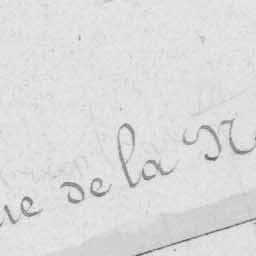 ue de la N